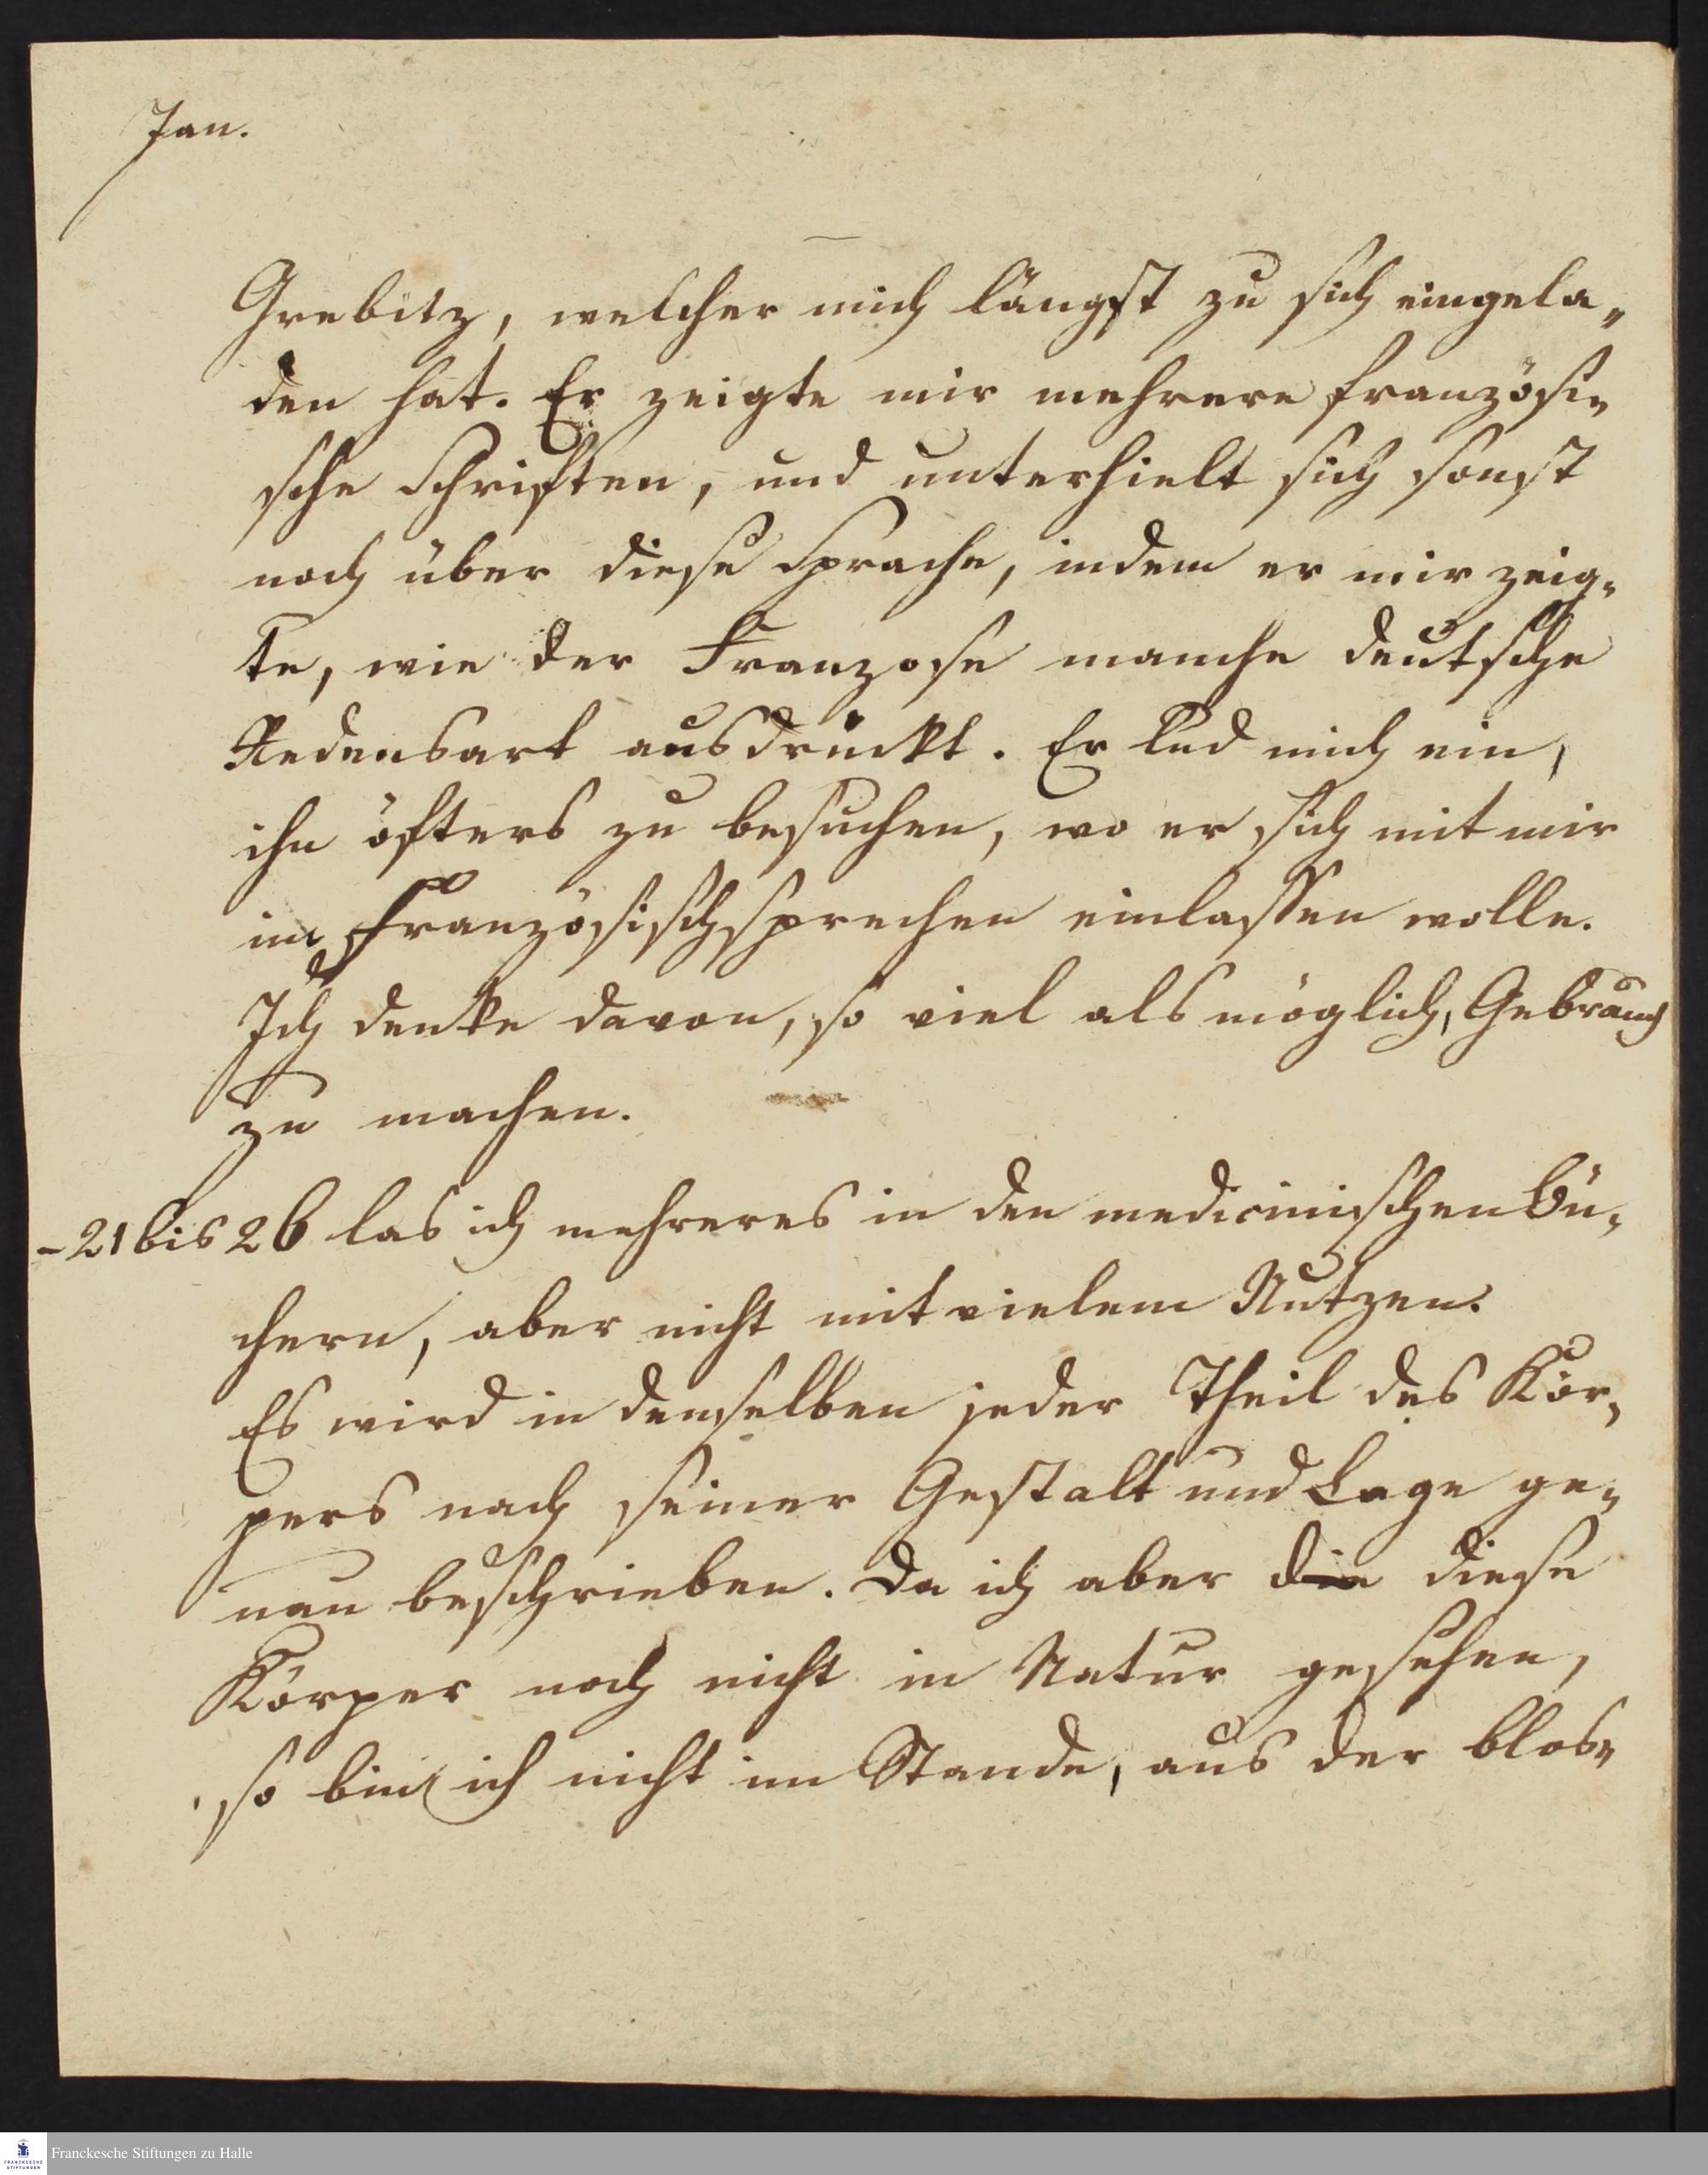 Jan.
Grebitz, welcher mich längst zu sich eingela„
den hat. Er zeigte mir mehrere französi„
sche Schriften, und unterhielt sich sonst
noch über diese Sprache, indem er mir zeig„
te, wie der Franzose manche deutsche
Redensart ausdrückt. Er lud mich ein,
ihn öfters zu besuchen, wo er sich mit mir
im Französischsprechen einlassen wolle.
Ich denke davon, so viel als möglich, Gebrauch
zu machen.
- 21 bis 26 las ich mehreres in den medicinischen Bü„
chern, aber nicht mit vielem Nutzen.
Es wird in demselben jeder Theil des Kör„
pers nach seiner Gestalt und Lage ge„
nau beschrieben. Da ich aber die diese
Körper noch nicht in Natur gesehen,
so bin ich nicht im Stande, aus der blos„
FRANCKESCHE
STIFTUNGEN
Franckesche Stiftungen zu Halle